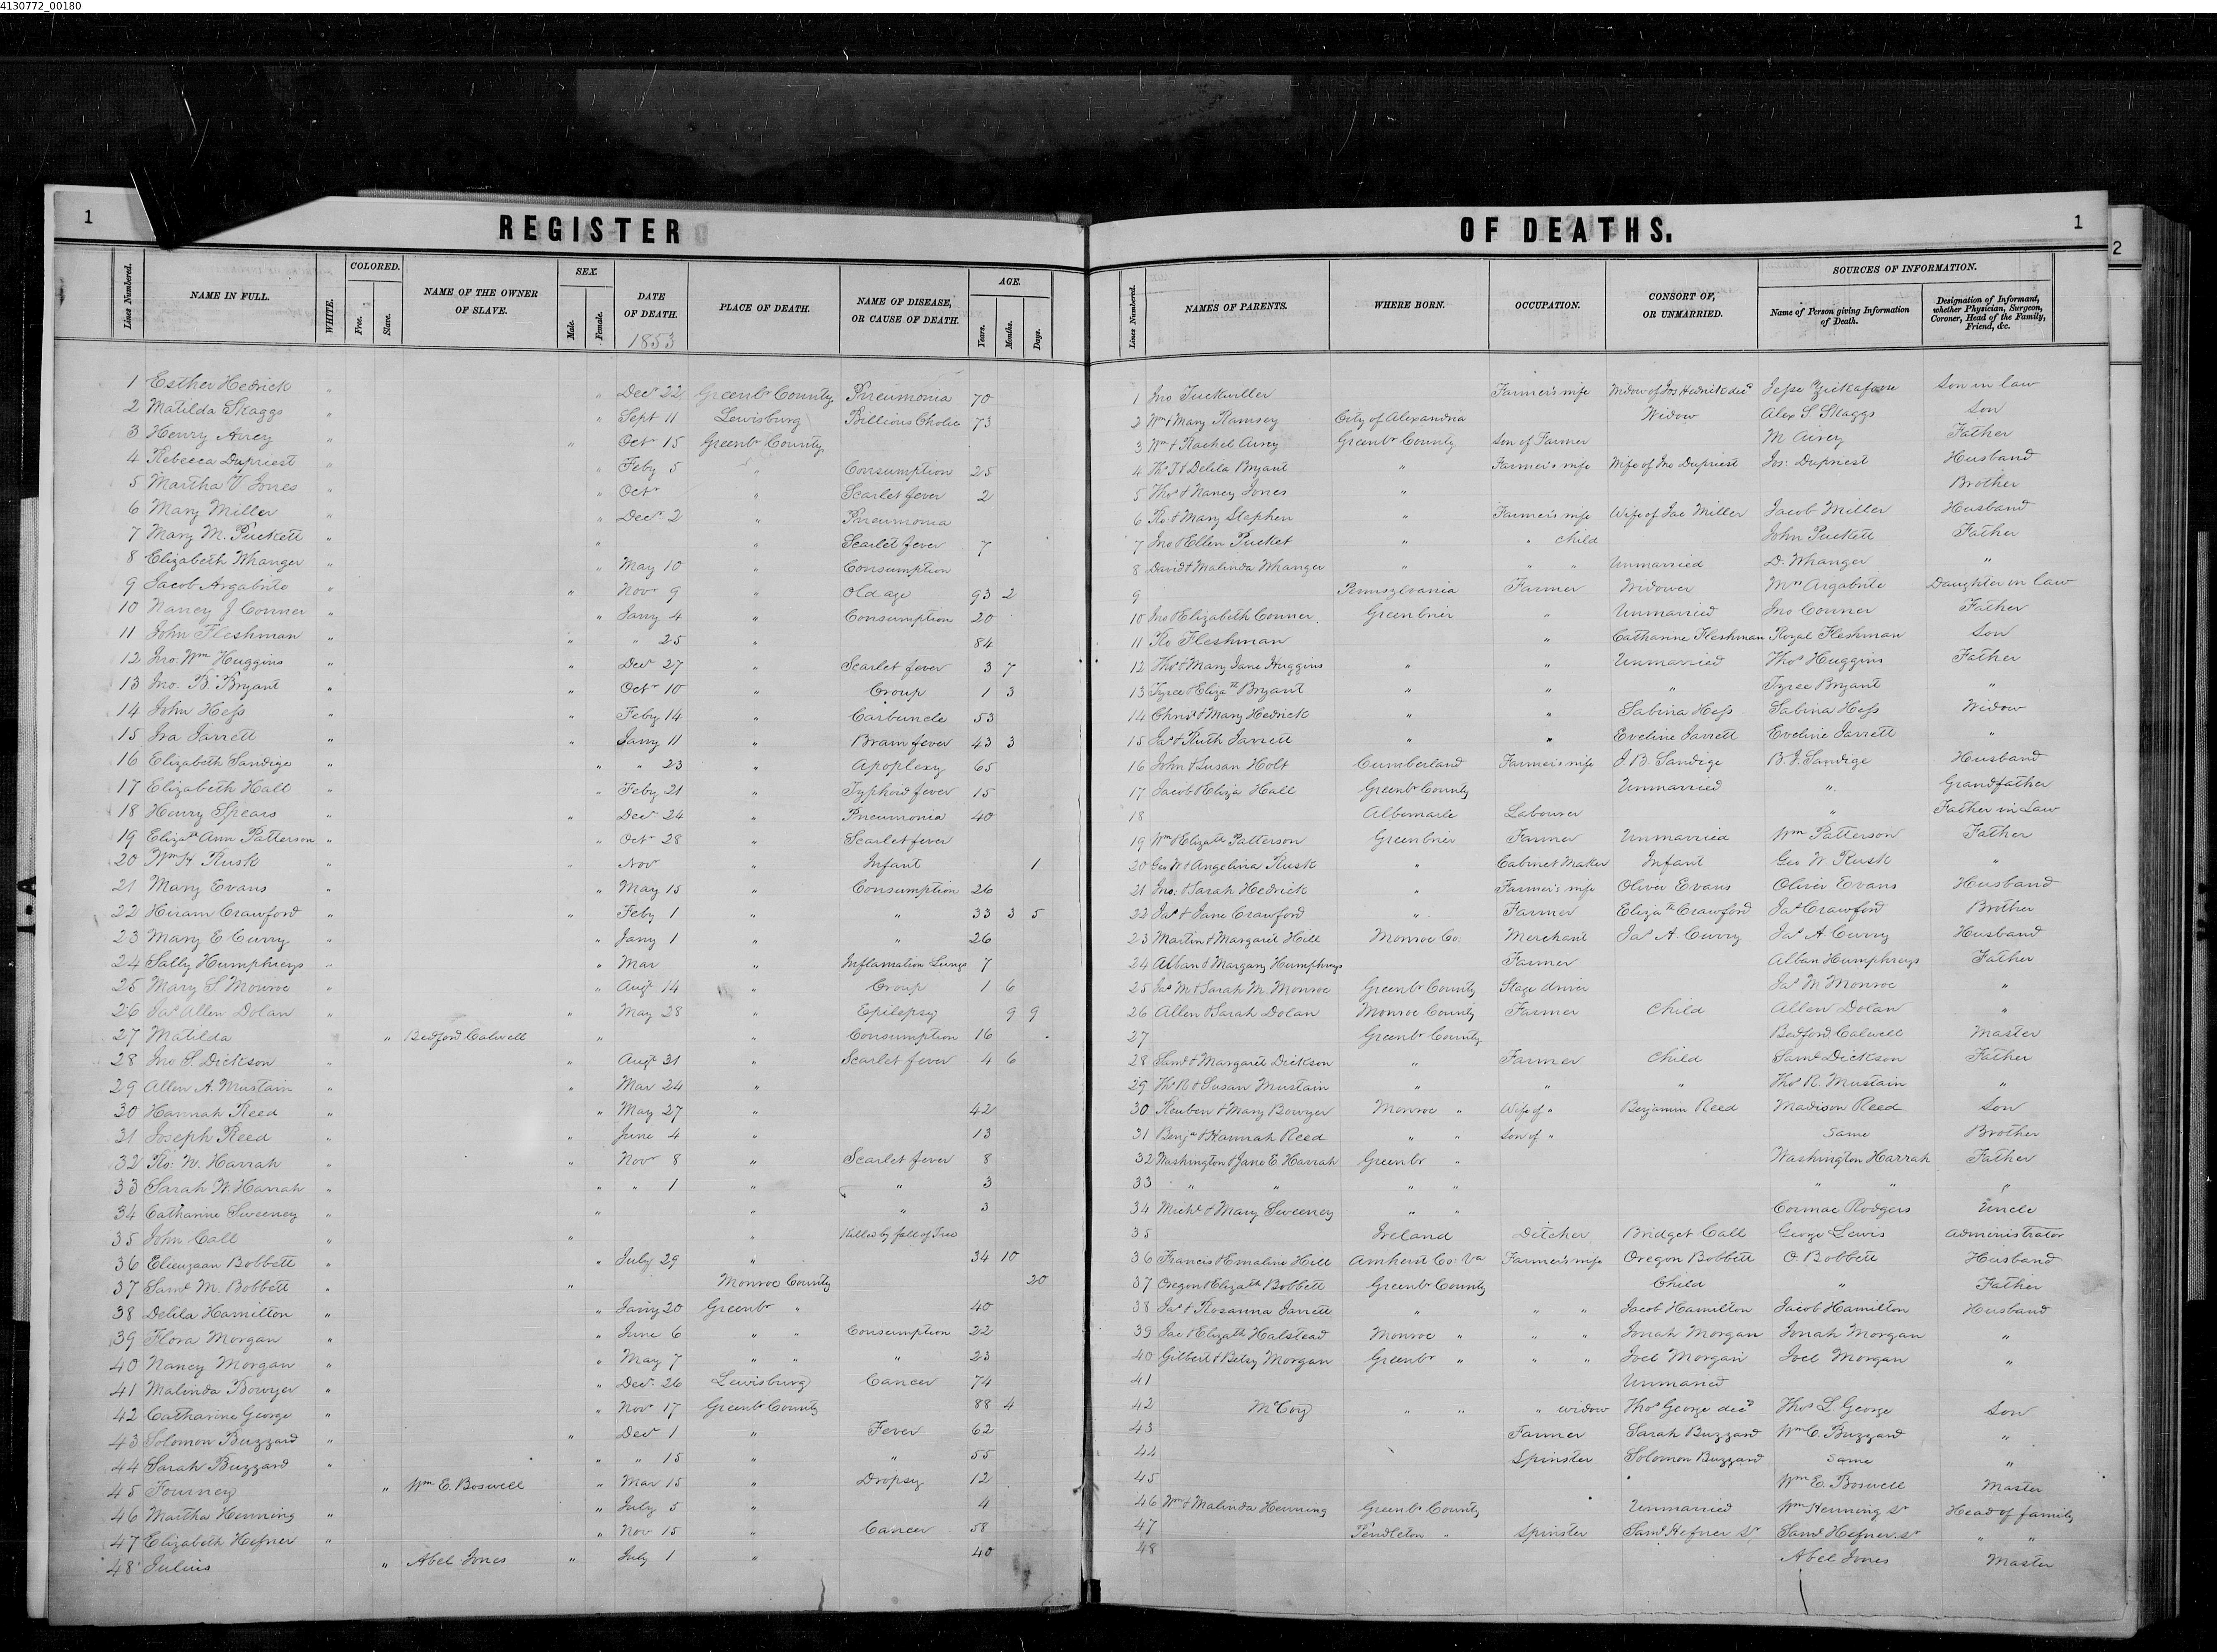 4130772_00180
1 REGISTER OF DEATHS. 1
2
Lines Numbered. NAME IN FULL. WHITE. COLORED. Free. Slave. NAME OF THE OWNER OF SLAVE. SEX. Male. Female. DATE OF DEATH. 1853 PLACE OF DEATH. NAME OF DISEASE, OR CAUSE OF DEATH. AGE. Years. Months. Days.
Lines Numbered. NAMES OF PARENTS. WHERE BORN. OCCUPATION. CONSORT OF, OR UNMARRIED. SOURCES OF INFORMATION. Name of Person giving Information of Death. Designation of Informant, whether Physician, Surgeon, Coroner, Head of the Family, Friend, &c.
1 Esther Hedrick " " Decr 22 Greenbr County Pneumonia 70 1 Jno Tuckwiller Farmer's wife Widow of Jos Hedrick decd Jesse Son in law
2 Matilda Skaggs " " Sept 11 Lewisburg Billious Cholic 73 2 Wm & Mary Ramsey City of Alexandria Widow Alex S. Skaggs Son
3 Henry Airey " " Octr 15 Greenbr County 3 Wm & Rachel Airey Greenbr County Son of Farmer M Airey Father
4 Rebecca Dupriest " " Feby 5 " Consumption 25 4 Ths T & Delila Bryant " Farmer's wife Wife of Jno Dupriest Jos: Dupriest Husband
5 Martha V Jones " " Octr " Scarlet fever 2 5 Thos & Nancy Jones " Brother
6 Mary Miller " " Decr 2 " Pneumonia 6 Ro. & Mary Stephen " Farmer's wife Wife of Jac Miller Jacob Miller Husband
7 Mary M. Puckett " " " Scarlet fever 7 7 Jno & Ellen Pucket " " child John Puckett Father
8 Elizabeth Whanger " " May 10 " Consumption 8 David & Malinda Whanger " " " Unmarried D. Whanger "
9 Jacob Argabrite " " Novr 9 " Old age 93 2 9 Pennsylvania Farmer Widower Mrs Argabrite Daughter in law
10 Nancy J Conner " " Jany 4 " Consumption 20 10 Jno & Elizabeth Conner Greenbrier " Unmarried Jno Conner Father
11 John Fleshman " " " 25 " 84 11 Ro Fleshman " Catharine Fleshman Royal Fleshman Son
12 Jno Wm Huggins " " Decr 27 " Scarlet fever 3 7 12 Thos & Mary Jane Huggins " " Unmarried Thos Huggins Father
13 Jno. B. Bryant " " Octr 10 " Croup 1 3 13 Tyree & Elizath Bryant " " " Tyree Bryant "
14 John Hess " " Feby 14 " Carbuncle 53 14 Christ & Mary Hedrick " " Sabina Hess Sabina Hess Widow
15 Ira Jarrett " " Jany 11 " Brain fever 43 3 15 Jas & Ruth Jarrett " " Eveline Jarrett Eveline Jarrett "
16 Elizabeth Sandige " " " 23 " Apoplexy 65 16 John & Susan Holt Cumberland Farmer's wife J B. Sandige B. J. Sandige Husband
17 Elizabeth Hall " " Feby 21 " Typhoid fever 15 17 Jacob & Eliza Hall Greenbr County Unmarried " Grandfather
18 Henry Spears " " Decr 24 " Pneumonia 40 18 Albemarle Labourer " Father in Law
19 Elizath Ann Patterson " " Octr 28 " Scarlet fever 19 Wm & Elizath Patterson Greenbrier Farmer Unmarried Wm Patterson Father
20 Wm H. Rusk " " Novr " Infant 1 20 Geo W & Angelina Rusk " Cabinet Maker Infant Geo W Rusk "
21 Mary Evans " " May 15 " Consumption 26 21 Jno: & Sarah Hedrick " Farmer's wife Oliver Evans Oliver Evans Husband
22 Hiram Crawford " " Feby 1 " " 33 3 5 22 Jas & Jane Crawford " Farmer Elizath Crawford Jas Crawford Brother
23 Mary E Curry " " Jany 1 " " 26 23 Martin & Margaret Hill Monroe Co: Merchant Jas A. Curry Jas A Curry Husband
24 Sally Humphreys " " Mar " Inflamation Lungs 7 24 Alban & Margary Humphreys Farmer Alban Humphreys Father
25 Mary S Monroe " " Augt 14 " Croup 1 6 25 Jas M & Sarah M. Monroe Greenbr County Stage driver Jas M Monroe "
26 Jas Allen Dolan " " May 28 " Epilepsy 9 9 26 Allen & Sarah Dolan Monroe County Farmer Child Allen Dolan "
27 Matilda " Bedford Calwell " " Consumption 16 27 Greenbr County Bedford Calwell Master
28 Jno S. Dickson " " Augt 31 " Scarlet fever 4 6 28 Saml & Margaret Dickson " Farmer Child Saml Dickson Father
29 Allen A. Mustain " " Mar 24 " 29 Ths R & Susan Mustain " " " Thos R. Mustain "
30 Hannah Reed " " May 27 " 42 30 Reuben & Mary Bowyer Monroe " Wife of " Benjamin Reed Madison Reed Son
31 Joseph Reed " " June 4 " 13 31 Benja & Hannah Reed " " Son of " Same Brother
32 Ro: W. Harrah " " Novr 8 " Scarlet fever 8 32 Washington & Jane E Harrah Greenbr " Washington Harrah Father
33 Sarah W. Harrah " " " 1 " " 3 33 " " " " " " "
34 Catharine Sweeney " " " " 3 34 Michl & Mary Sweeney " " Cormac Rodgers Uncle
35 John Call " " " Killed by fall of Tree 35 Ireland Ditcher Bridget Call George Lewis Administrator
36 Bobbett " " July 29 " 34 10 36 Francis & Emaline Hill Amherst Co. Va Farmer's wife Oregon Bobbett O Bobbett Husband
37 Saml M. Bobbett " " Monroe County 20 37 Oregon & Elizath Bobbett Greenbr County Child " Father
38 Delila Hamilton " " Jany 20 Greenbr " 40 38 Jas & Rosanna Jarrett " " " Jacob Hamilton Jacob Hamilton Husband
39 Flora Morgan " " June 6 " " Consumption 22 39 Jac & Elizath Halstead Monroe " " " Jonah Morgan Jonah Morgan "
40 Nancy Morgan " " May 7 " " " 23 40 Gilbert & Betsy Morgan Greenbr " " " Joel Morgan Joel Morgan "
41 Malinda Bowyer " " Decr. 26 Lewisburg Cancer 74 41 Unmaried
42 Catharine George " " Novr 17 Greenbr County 88 4 42 McCoy " " " widow Thos George decd Thos L. George Son
43 Solomon Buzzard " " Decr 1 " Fever 62 43 Farmer Sarah Buzzard Wm C. Buzzard "
44 Sarah Buzzard " " " 15 " " 55 44 Spinster Solomon Buzzard Same "
45 Fourney " Wm E. Boswell " Mar 15 " Dropsy 12 45 Wm E. Boswell Master
46 Martha Henning " " July 5 " 4 46 Wm & Malinda Henning Greenbr County Unmarried Wm Henning Sr Head of family
47 Elizabeth Hefner " " Nov 15 " Cancer 58 47 Pendleton " Spinster Saml Hefner Sr Saml Hefner Sr " "
48 Julius " Abel Jones " July 1 " 40 48 Abel Jones Master